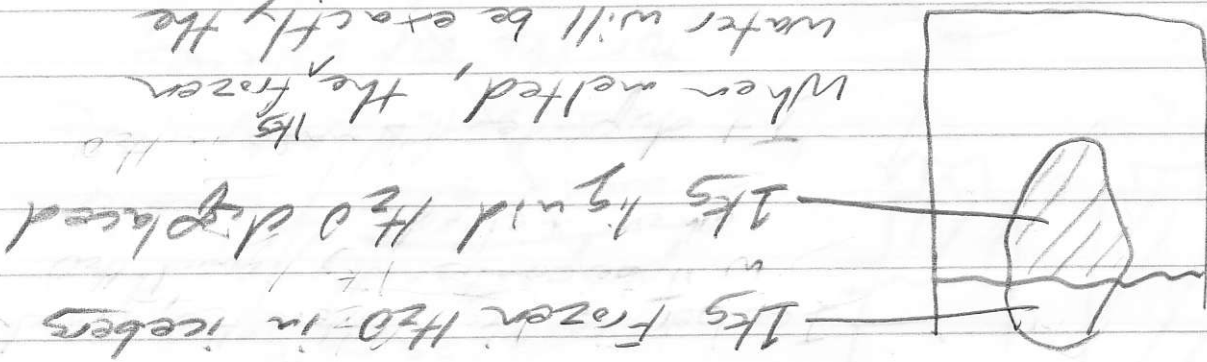 1kg Frozen H2O in iceberg
=
1kg liquid H2O displaced
When melted, the ^1kg frozen
water will be exactly the